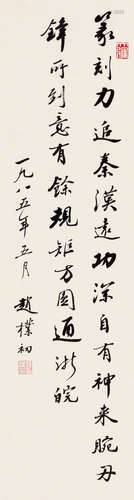 篆刻力追秦漢遠功深自有神来腕刃
鋒所到意有餘規矩方圓通浙皖
一九八五年五月 趙樸初